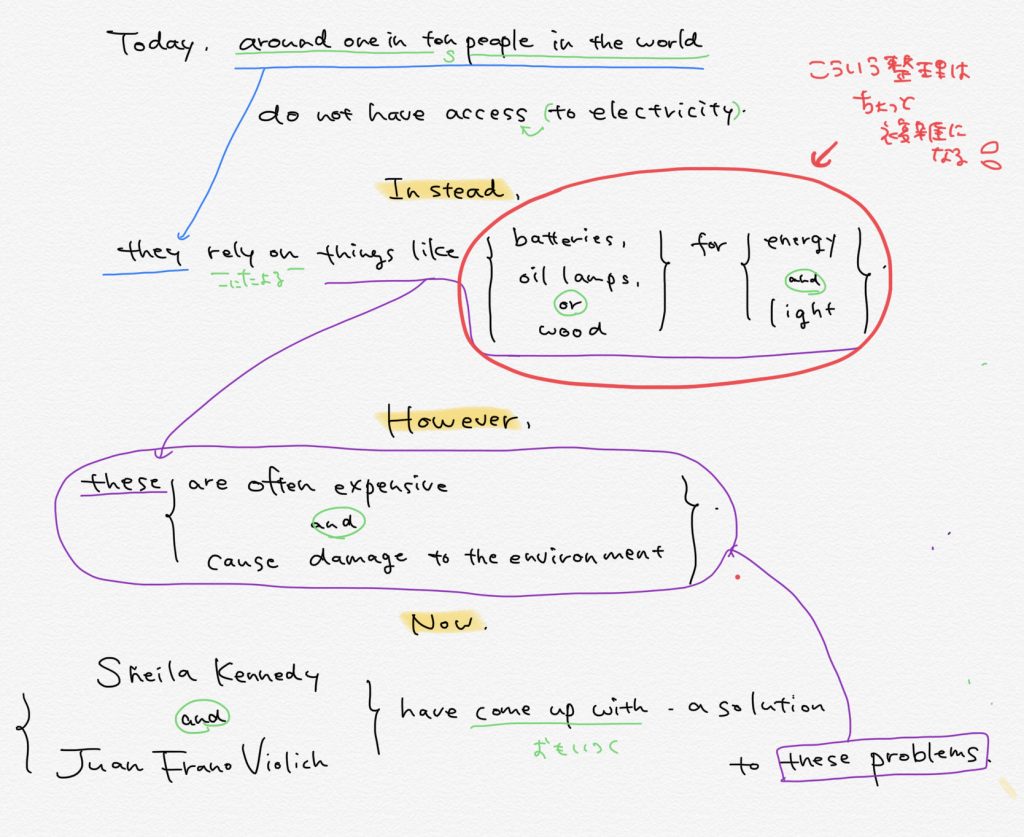 Today, around one in ten people in the world
s
do not have access (to electricity).
こういう整理は
ちょっと
複雑に
なる
Instead,
they rely on things like { batteries, oil lamps, or wood } for { energy and light }.
ーにたよるー
However,
these { are often expensive
and
cause damage to the environment } .
Now,
Sheila Kennedy
and
Juan Frano Violich
have come up with a solution
おもいつく
to these problems.